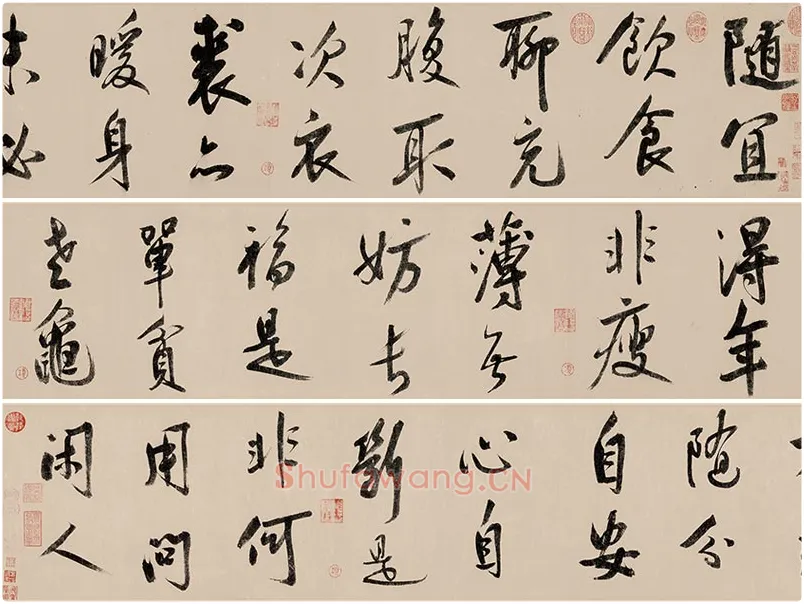 隨宜
飲食
聊充
腹取
次衣
裘亦
暖身
未必
得年
非瘦
薄無
妨長
福是
單貧
老龜
随分
自安
心自
斷是
非何
用問
閑人
Shufawang.CN